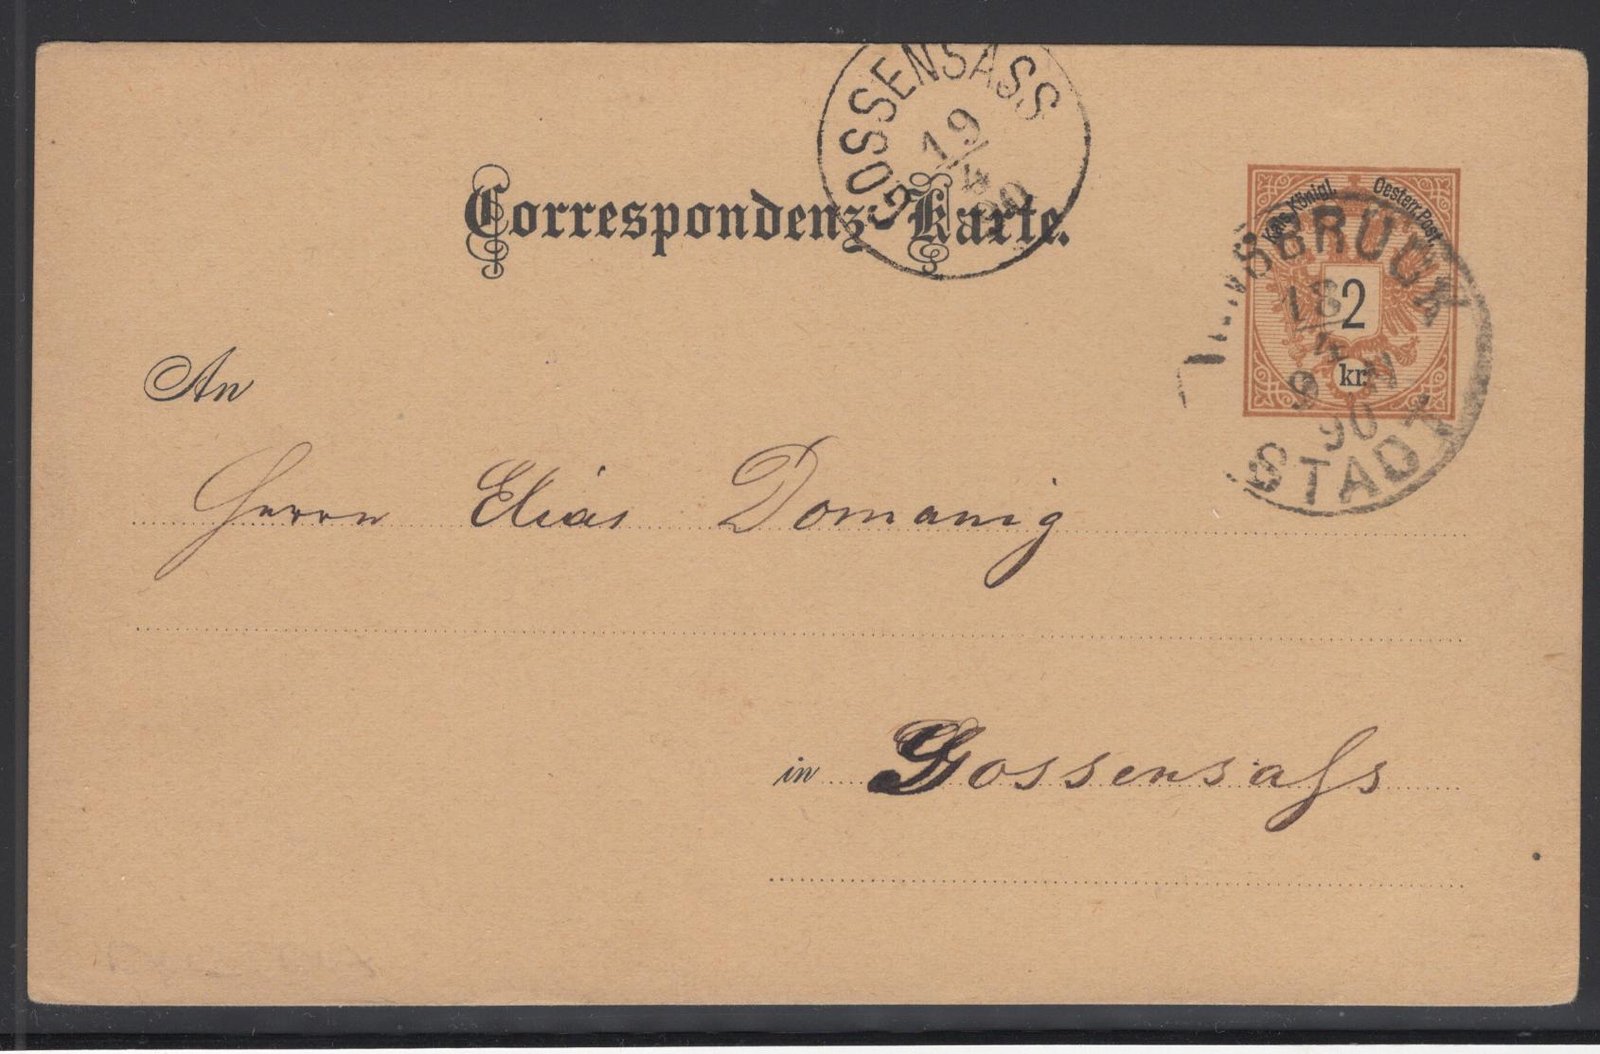 GOSSENSASS
19/4
90
Correspondenz-Karte.
Kais. Königl. Oesterr. Post.
2
kr.
INNSBRUCK
18
4
9 N
90
STADT
An
Herrn Elias Domanig
in Gossensaſs